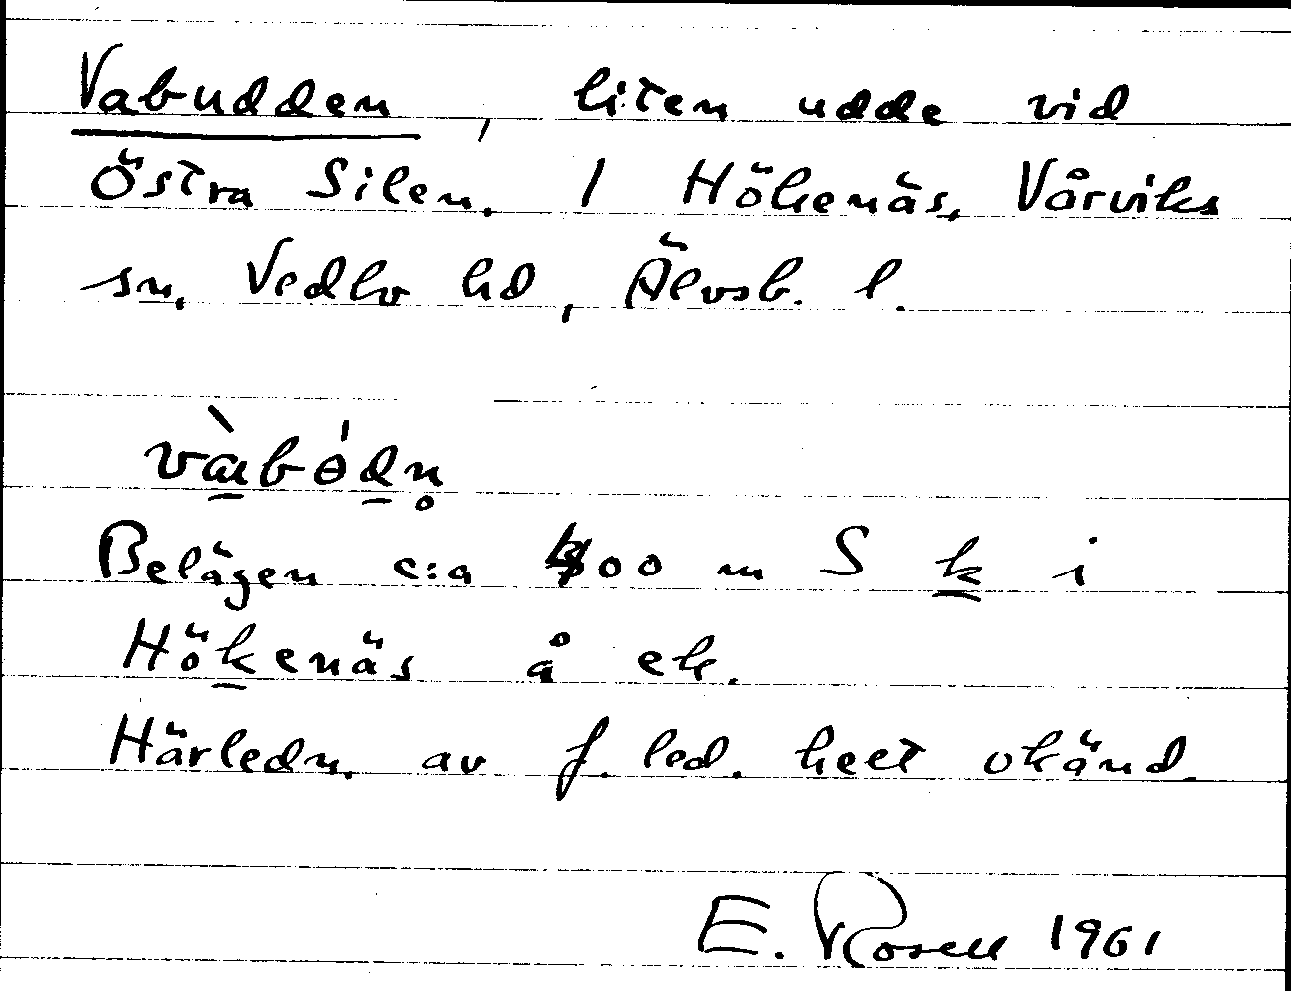 Vabudden, liten udde vid
Östra Silen. I Hökenäs, Vårviks
sn, Vedbo hd, Älvsb. l.
Belägen c:a 400 m S k i
Hökenäs å ek.
Härledn. av f. led. helt okänd.
E. Rosell 1961